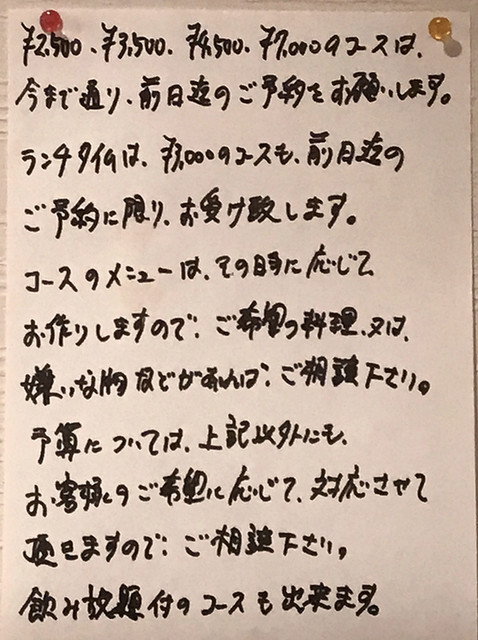 ¥2,500、¥3,500、¥4,500、¥7,000のコースは、
今まで通り、前日迄のご予約をお願いします。
ランチタイムは、¥3,000のコースも、前日迄の
ご予約に限り、お受け致します。
コースのメニューは、その日時に応じて
お作りしますので、ご希望の料理、又は、
嫌いな物などがあれば、ご相談下さい。
予算については、上記以外にも、
お客様のご希望に応じて、対応させて
頂きますので、ご相談下さい。
飲み放題付のコースも出来ます。